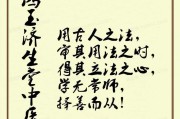 冯玉济生堂中医
用古人之法，
审其用法之时，
得其立法之心，
学无常师，
择善而从！